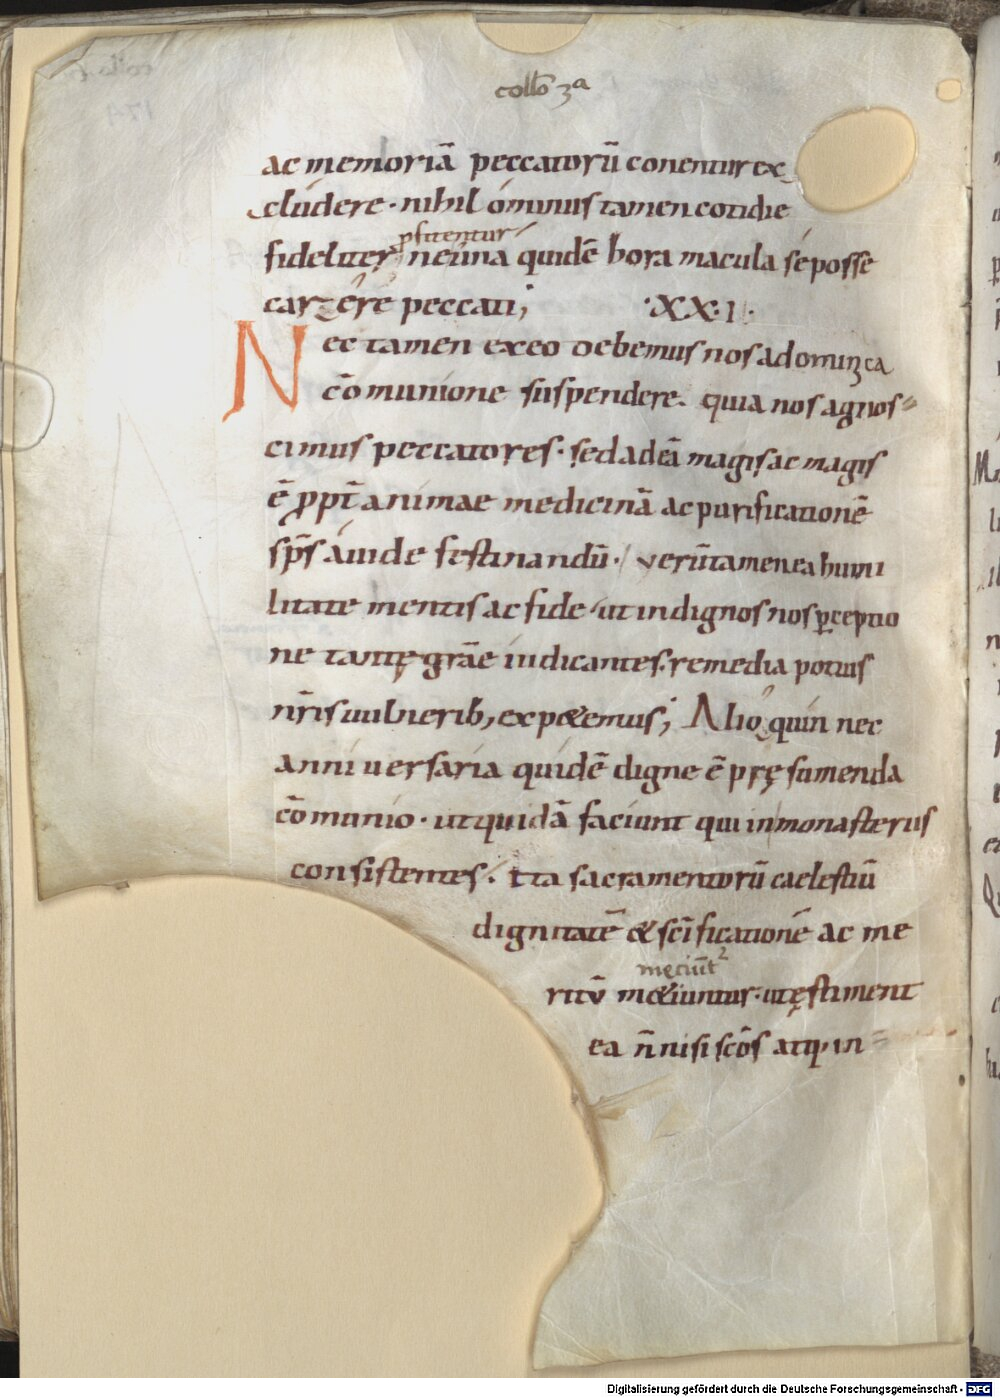 collō 3ᵃ
ac memoriā peccatorū conentur ex
cludere · nihil ominus tamen cotidie
pfitentur
fideliter ne una quidē hora macula se posse
carere peccati; ·XX·I·
Nec tamen ex eo debemus nos a dominica
cōmunione suspendere. quia nos agnos-
cimus peccatores · sed ad eā magis ac magis
ē ppt̄ animae medicinā ac purificationē
sp̄s auide festinandū · verūtamen ea humi
litate mentis ac fide ut indignos nos pceptio
ne tantę grāe iudicantes. remedia potius
nr̄is uulnerib; expetemus; Alioquin nec
anniuersaria quidē digne ē pręsumenda
cōmunio · ut quidā faciunt qui in monasteriis
consistentes. ita sacramentorū caelestiū
dignitatē & sc̄ificationē ac me
męciūt²
ritū m&iuntur · ut ęstiment
ea n̄ nisi sc̄os atq; in-
Digitalisierung gefördert durch die Deutsche Forschungsgemeinschaft - DFG